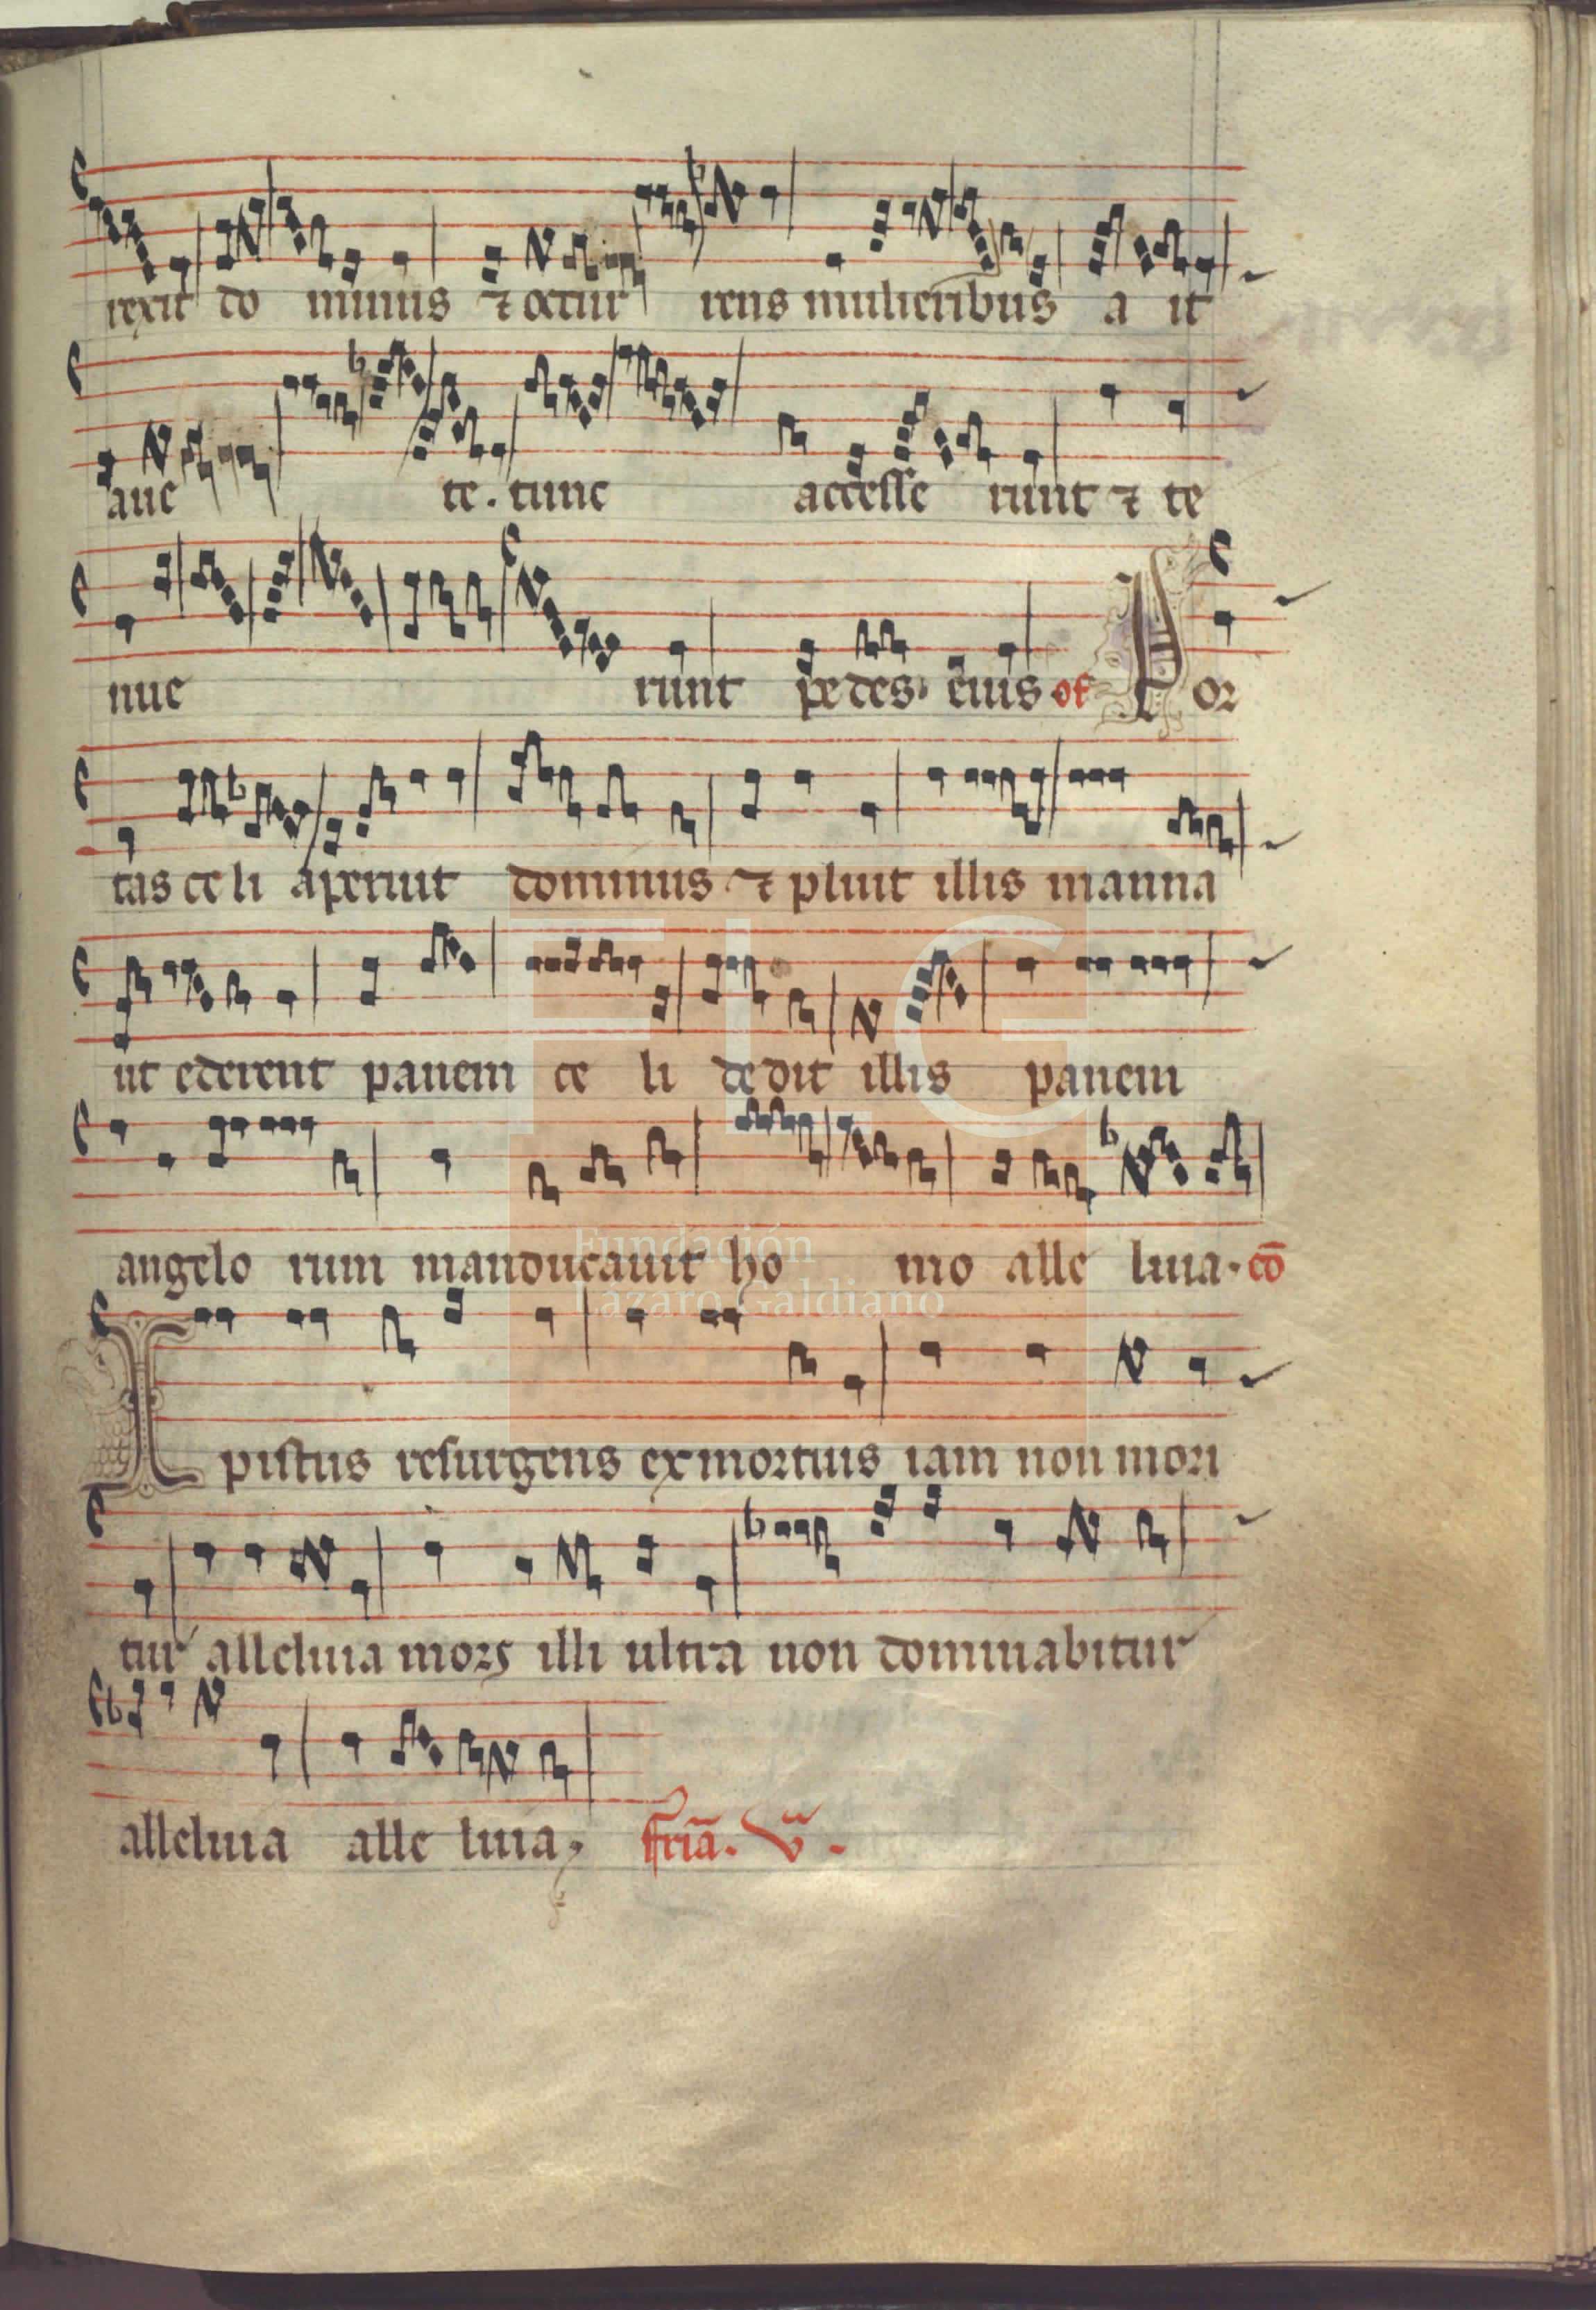 rexit do minus ⁊ occur rens mulieribus a it
aue te. tunc accesse runt ⁊ te
nue runt pedes eius of P or
tas celi aperuit dominus ⁊ pluit illis manna
ut ederent panem ce li dedit illis panem
angelo rum manducauit ho mo alle luia. cō
X pistus resurgens ex mortuis iam non mori
tur alleluia mors illi ultra non dominabitur
alleluia alle luia. fria. v.
FLG
Fundación
Lázaro Galdiano